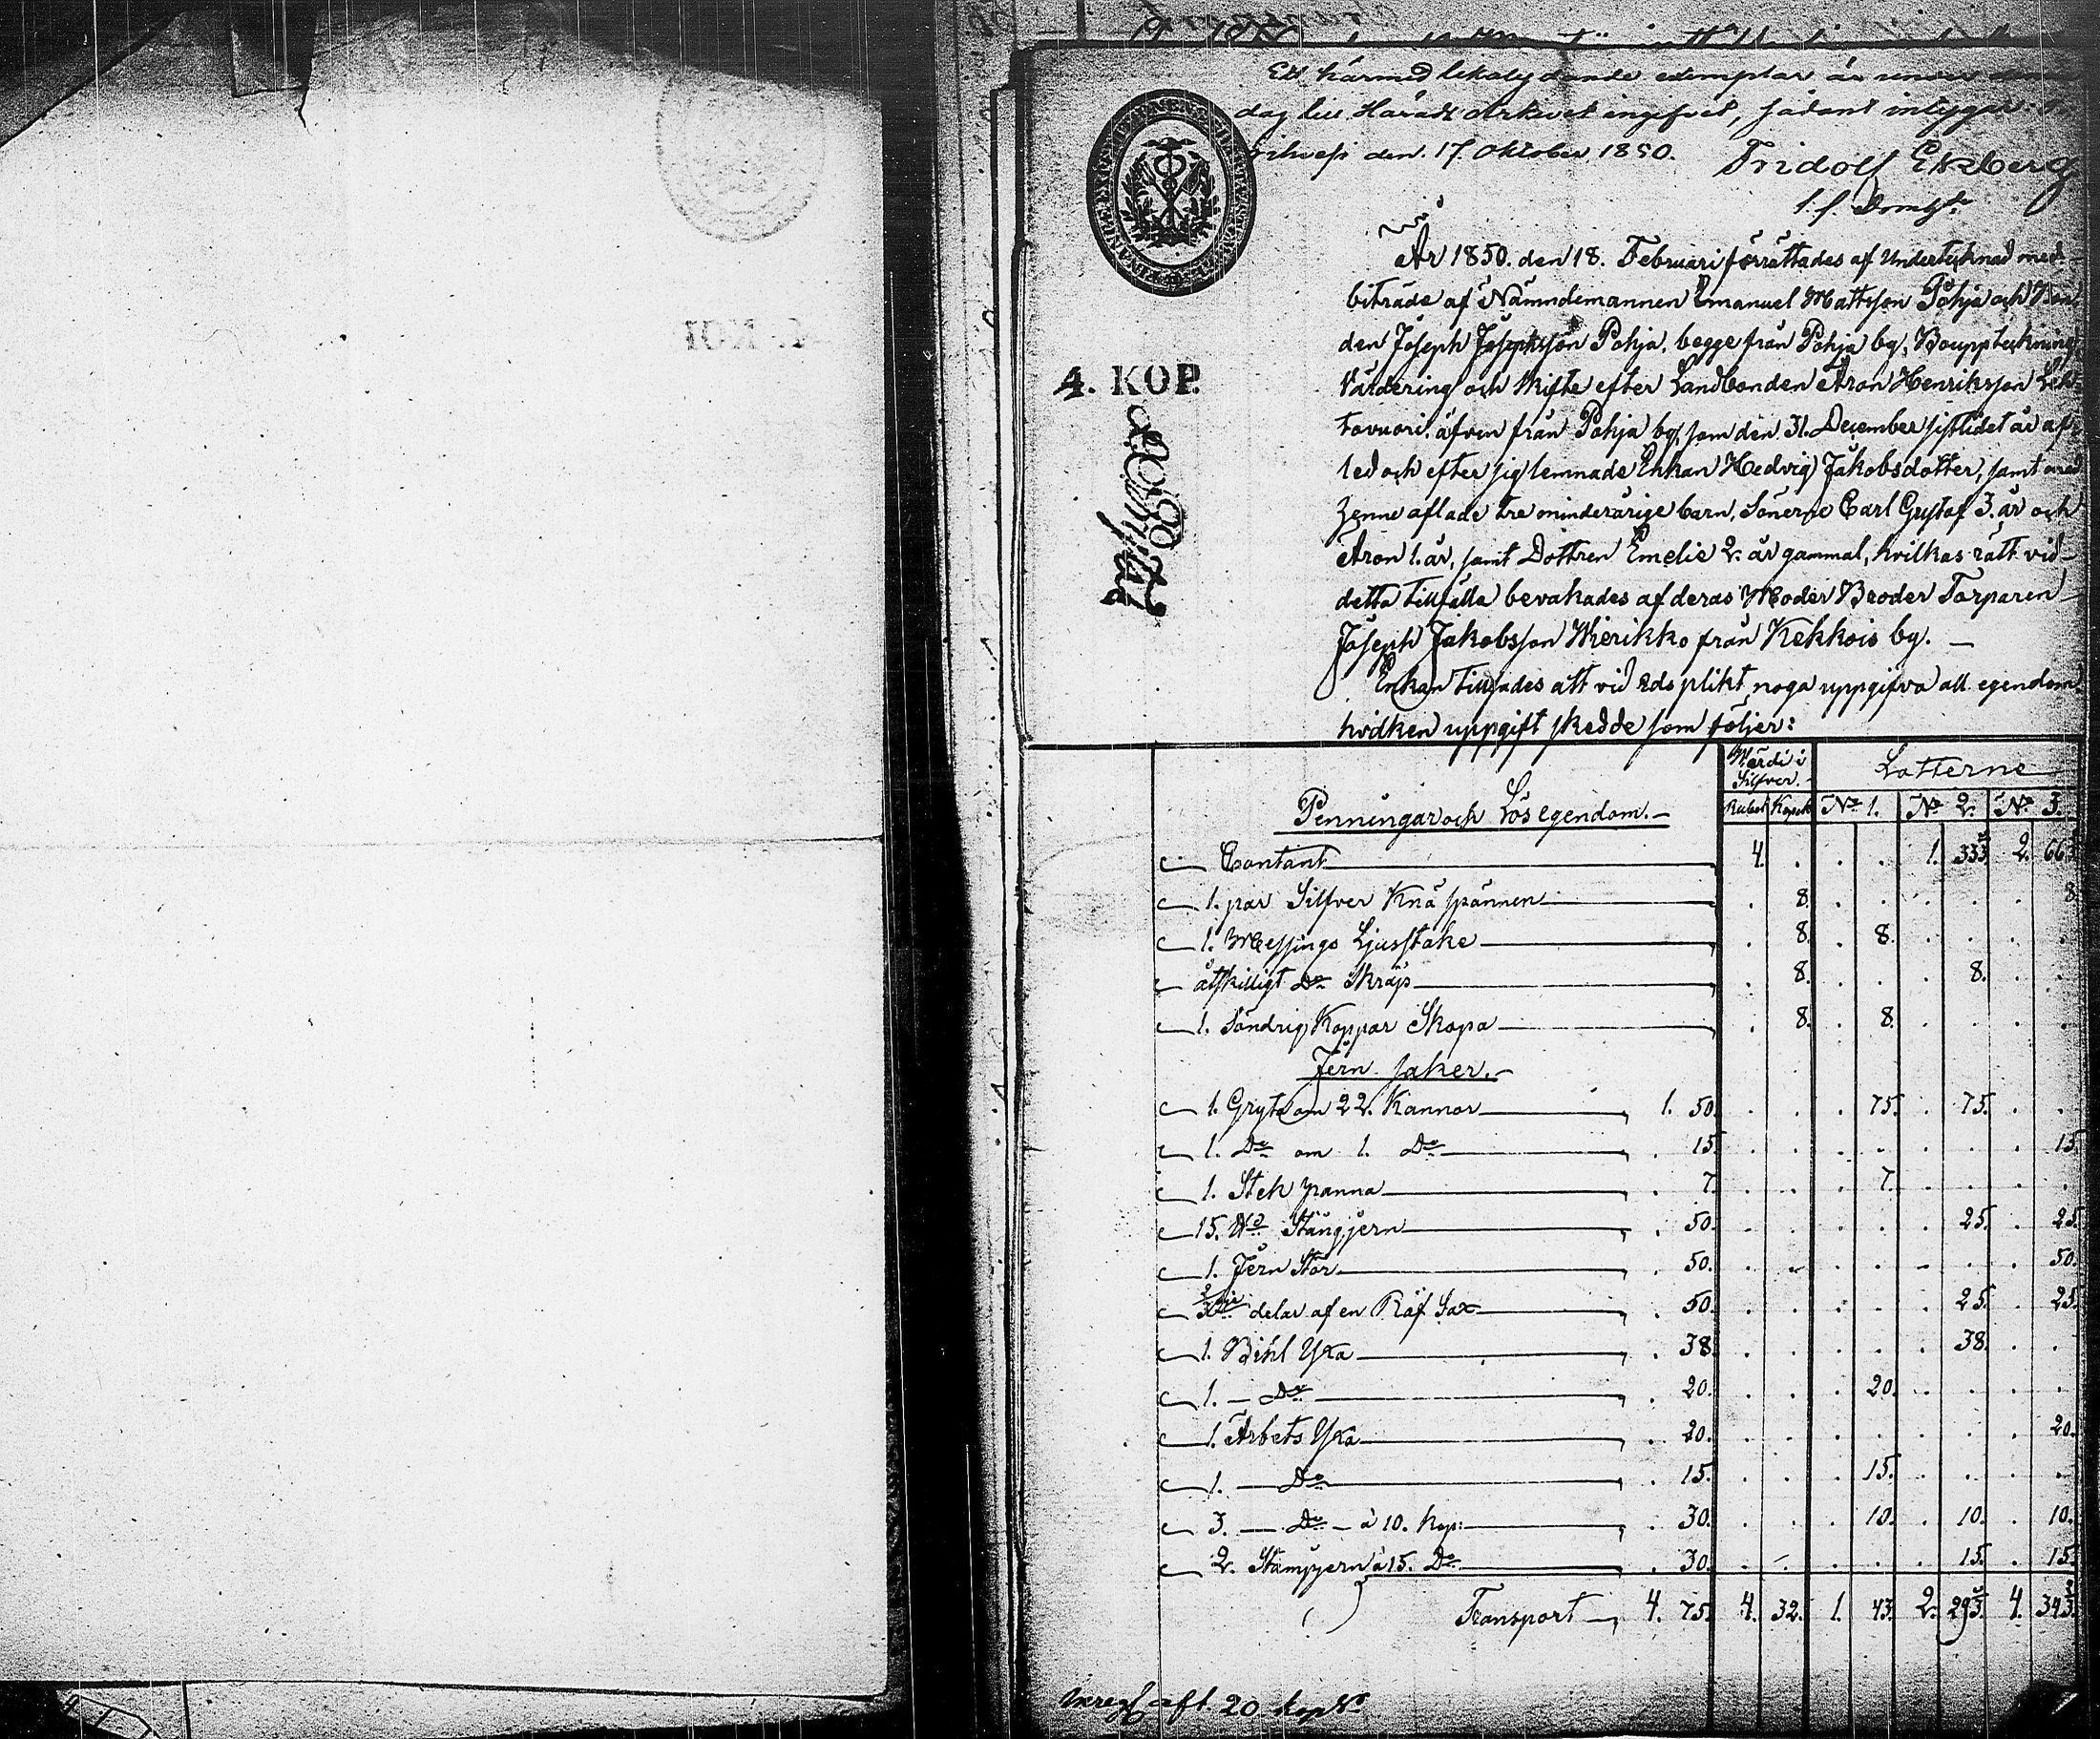 Ett härmed likalydande exemplar är under denna
dag till Härads Arkivet ingifvet, sådant intygar
den 17. Oktober 1850. Fridolf Ekberg
t. f. Domh.
År 1850. den 18. Februari förrättades af Undertecknad med
biträde af Nämndemannen Emanuel Mattsson Pohja och Bon-
den Joseph Josephsson Pohja, begge från Pohja by, Bouppteckning,
4. KOP.
Värdering och Skifte efter Landbonden Aron Henriksson Leh-
tovuori äfven från Pohja by, som den 31. December sistlidet år af-
led och efter sig lemnade Enkan Hedvig Jakobsdotter, samt med
henne aflade tre minderårige barn, Sönerne Carl Gustaf 3. år och
Aron 1. år, samt Dottren Emelie 2. år gammal, hvilkas rätt vid
detta tillfälle bevakades af deras Moder Broder Torparen
Joseph Jakobsson Wierikko från Kekkois by. —
Enkan tillsades att vid Eds plikt noga uppgifva all egendom
hvilken uppgift skedde som följer:
Wärde i Silfver. Lotterne
Penningar och Lösegendom.— Rubel Kopek N° 1. N° 2. N° 3.
Contant 4. . . . 1. 33⅓ 2. 66⅔
1. par Silfver Knä spännen . 8. . . . . . 8.
1. Messings Ljusstake . 8. . 8. . . . .
åtskilligt D° Skräp . 8. . . . 8. . .
1. Söndrig Koppar Skopa . 8. . 8. . . . .
Jern saker.—
1. Gryta om 22. Kannor 1. 50. . . . 75. . 75. . .
1. D° om 1. D° . 15. . . . . . . . 15.
1. Stek panna . 7. . . . 7. . . . .
15. ℔ Stångjern . 50. . . . . . 25. . 25.
1. Jern Stör . 50. . . . . . . . 50.
delar af en Räf Sax . 50. . . . . . 25. . 25.
1. Bihl Yxa . 38. . . . . . 38. . .
1. — D° . 20. . . . 20. . . . .
1. Arbets Yxa . 20. . . . . . . . 20.
1. — D° . 15. . . . 15. . . . .
3. — D° — à 10. kop: . 30. . . . 10. . 10. . 10.
2. Stampjern à 15. D° . 30. . . . . . 15. . 15.
Transport 4. 75. 4. 32. 1. 43. 2. 29⅓. 4. 34⅔.
aft. 20 kop